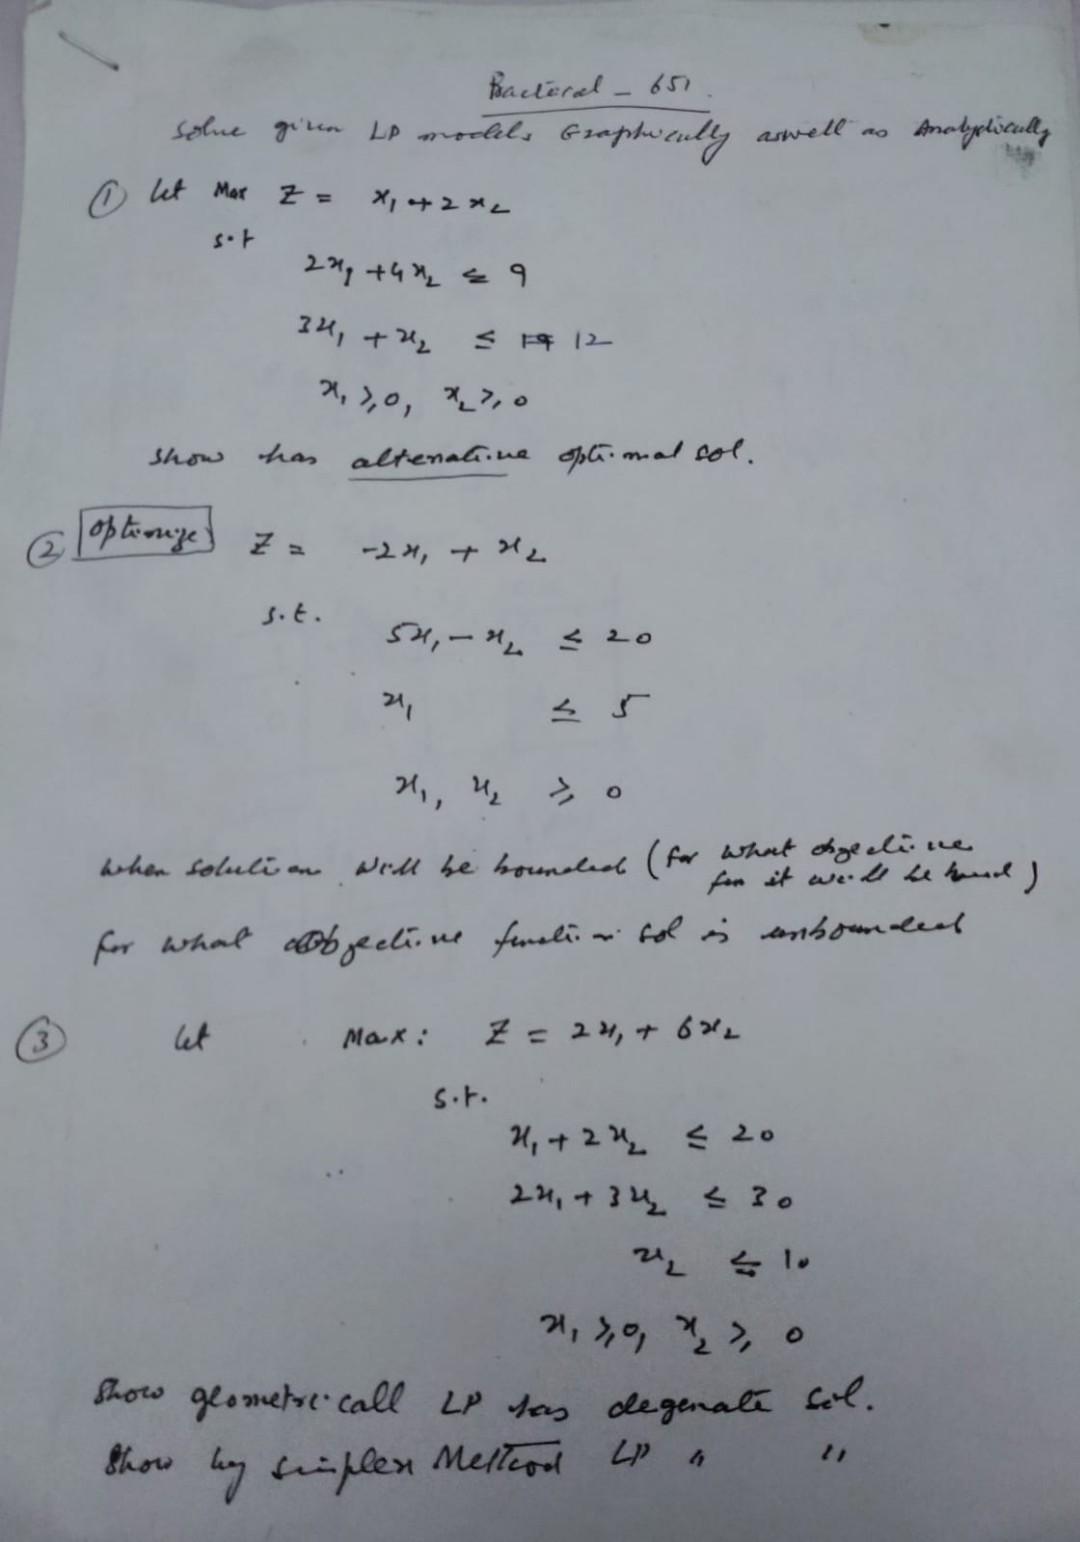 Practical - 651.
Solve given LP models Graphically aswell as Analytically
① let Max Z = x₁ + 2x₂
s.t
2x₁ + 4x₂ ≤ 9
3x₁ + x₂ ≤ 12
x₁ ≥ 0, x₂ ≥ 0
show has alternative optimal sol.
② Optimize Z = -2x₁ + x₂
s.t.
5x₁ - x₂ ≤ 20
x₁ ≤ 5
x₁, x₂ ≥ 0
when solution will be bounded (for what objective
fun it will be )
for what Objective function sol is unbounded
③ let Max: Z = 2x₁ + 6x₂
s.t.
x₁ + 2x₂ ≤ 20
2x₁ + 3x₂ ≤ 30
x₂ ≤ 10
x₁ ≥ 0, x₂ ≥ 0
Show geometricall LP has degenate sol.
Show by simplex Method LP " "